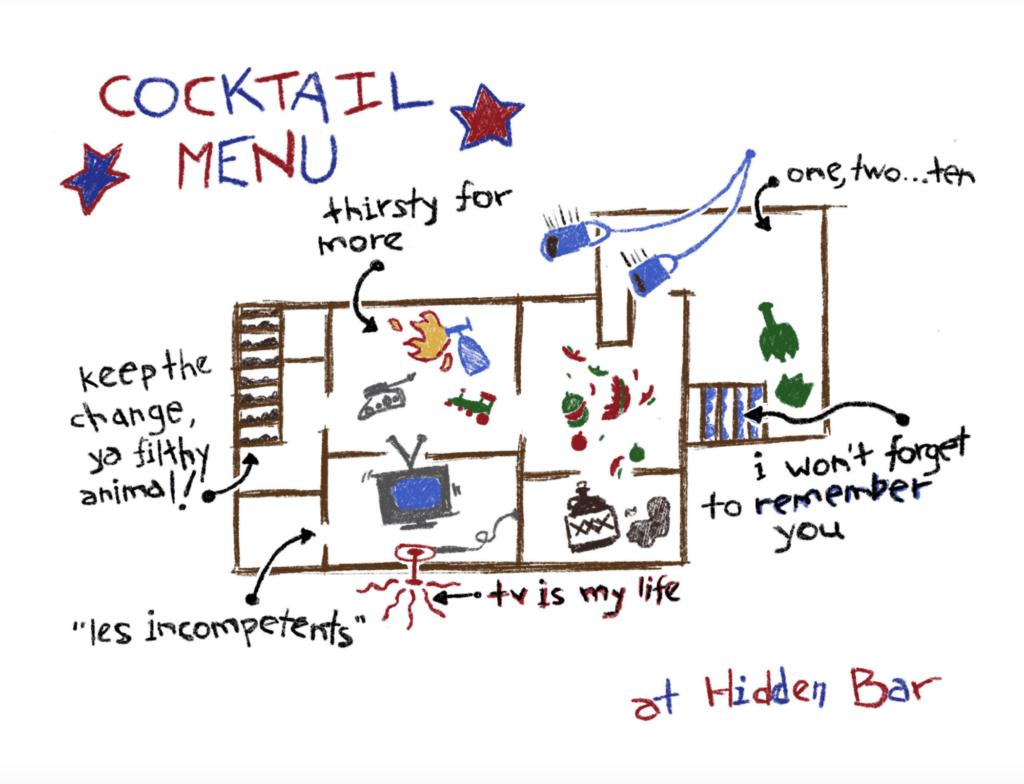 COCKTAIL
MENU
thirsty for
more
one, two...ten
keep the
change,
ya filthy
animal!
i won't forget
to remember
you
XXX
tv is my life
"les incompetents"
at Hidden Bar